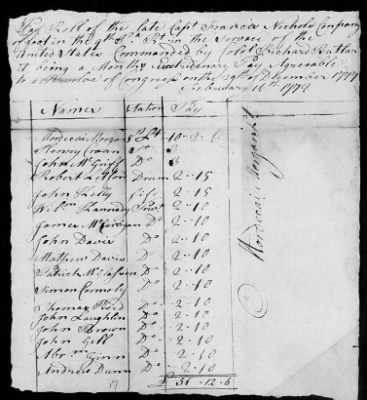 Pay Roll of the late Capt Francis Nichols Company
of foot in the 9th Pa. Rgt. in the Service of the
United States Commanded by Colol Richard Butler
it being a Months Extraordinary Pay Agreeable
to a Resolve of Congress on the 29th of December 1777
February 16th 1778
Names Station Pay
Mordecai Morgan Lt 10 2 6
Henry Evan St 3
John McGriff Do 3
Robert Litton Drum 2 .. 15
John Kelly fife 2 .. 15
Willm Shannady Privt 2 .. 10
James McCarrican Do 2 .. 10
John Davis Do 2 .. 10
Mathew Davis Do 2 .. 10
Patrick Do 2 .. 10
Simon Connoly Do 2 .. 10
Thomas Reed Do 2 .. 10
John Laughlin Do 2 .. 10
John Brown Do 2 .. 10
John Gill Do 2 .. 10
Abrm Ginn Do 2 .. 10
Andrew Dunn Do 2 .. 10
17 £ 51 .. 12 .. 6
Mordecai Morgan Lt